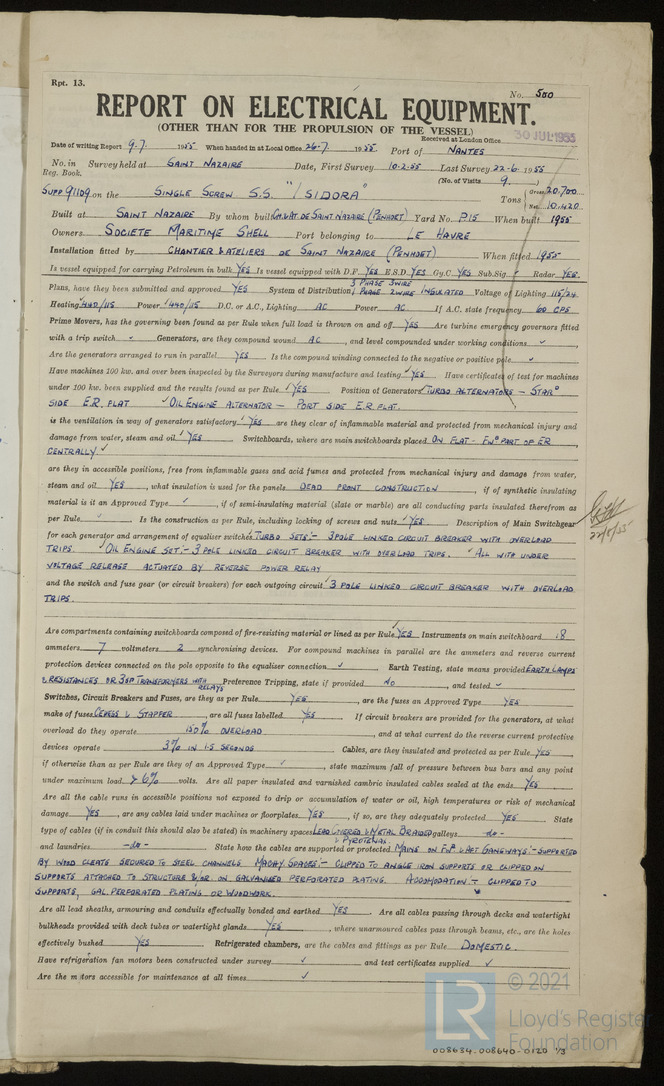 Rpt. 13.
No. 500
REPORT ON ELECTRICAL EQUIPMENT.
(OTHER THAN FOR THE PROPULSION OF THE VESSEL)
Received at London Office 30 JUL 1955
Date of writing Report 9.7. 1955 When handed in at Local Office 26.7. 1955. Port of NANTES
No. in Reg. Book. Survey held at SAINT NAZAIRE Date, First Survey 10-2-55 Last Survey 22-6 1955
(No. of Visits 9. )
SUPP 91109 on the SINGLE SCREW S.S. "ISIDORA" Tons Gross 20.700 Net 10.420
Built at SAINT NAZAIRE By whom built CH. & AT. DE SAINT NAZAIRE (PENHOET) Yard No. P.15 When built 1955
Owners SOCIETE MARITIME SHELL Port belonging to LE HAVRE
Installation fitted by CHANTIER & ATELIERS DE SAINT NAZAIRE (PENHOET) When fitted 1955
Is vessel equipped for carrying Petroleum in bulk YES Is vessel equipped with D.F. YES E.S.D. YES Gy.C. YES Sub.Sig. Radar YES.
Plans, have they been submitted and approved YES System of Distribution 3 PHASE 3 WIRE 1 PHASE 2 WIRE INSULATED Voltage of Lighting 115/24
Heating 440/115 Power 440/115 D.C. or A.C., Lighting AC Power AC If A.C. state frequency 60 CPS
Prime Movers, has the governing been found as per Rule when full load is thrown on and off YES Are turbine emergency governors fitted
with a trip switch Generators, are they compound wound AC, and level compounded under working conditions ✓
Are the generators arranged to run in parallel YES Is the compound winding connected to the negative or positive pole ✓
Have machines 100 kw. and over been inspected by the Surveyors during manufacture and testing YES Have certificates of test for machines
under 100 kw. been supplied and the results found as per Rule. YES Position of Generators TURBO ALTERNATORS - STARD
SIDE E.R. FLAT OIL ENGINE ALTERNATOR - PORT SIDE E.R. FLAT.
is the ventilation in way of generators satisfactory YES are they clear of inflammable material and protected from mechanical injury and
damage from water, steam and oil YES Switchboards, where are main switchboards placed ON FLAT - FWD PART OF ER
CENTRALLY ✓
are they in accessible positions, free from inflammable gases and acid fumes and protected from mechanical injury and damage from water,
steam and oil YES, what insulation is used for the panels DEAD FRONT CONSTRUCTION, if of synthetic insulating
material is it an Approved Type ✓, if of semi-insulating material (slate or marble) are all conducting parts insulated therefrom as
per Rule Is the construction as per Rule, including locking of screws and nuts YES Description of Main Switchgear
22/8/55
for each generator and arrangement of equaliser switches TURBO SETS:- 3 POLE LINKED CIRCUIT BREAKER WITH OVERLOAD
TRIPS. OIL ENGINE SET:- 3 POLE LINKED CIRCUIT BREAKER WITH OVERLOAD TRIPS. ALL WITH UNDER
VOLTAGE RELEASE ACTUATED BY REVERSE POWER RELAY
and the switch and fuse gear (or circuit breakers) for each outgoing circuit 3 POLE LINKED CIRCUIT BREAKER WITH OVERLOAD
TRIPS.
Are compartments containing switchboards composed of fire-resisting material or lined as per Rule YES Instruments on main switchboard 18
ammeters 7 voltmeters 2 synchronising devices. For compound machines in parallel are the ammeters and reverse current
protection devices connected on the pole opposite to the equaliser connection ✓ Earth Testing, state means provided EARTH LAMPS
& RESISTANCES OR 3 SP TRANSFORMERS WITH RELAYS Preference Tripping, state if provided NO, and tested
Switches, Circuit Breakers and Fuses, are they as per Rule YES, are the fuses an Approved Type YES
make of fuses CEHESS & STAFFER, are all fuses labelled YES If circuit breakers are provided for the generators, at what
overload do they operate 150% OVERLOAD, and at what current do the reverse current protective
devices operate 3% IN 1.5 SECONDS Cables, are they insulated and protected as per Rule YES,
if otherwise than as per Rule are they of an Approved Type ✓, state maximum fall of pressure between bus bars and any point
under maximum load ≯ 6% volts. Are all paper insulated and varnished cambric insulated cables sealed at the ends YES
Are all the cable runs in accessible positions not exposed to drip or accumulation of water or oil, high temperatures or risk of mechanical
damage YES, are any cables laid under machines or floorplates YES, if so, are they adequately protected YES State
type of cables (if in conduit this should also be stated) in machinery spaces LEAD COVERED & METAL BRAIDED & PYROTENAX galleys -do-
and laundries -do- State how the cables are supported or protected MAINS ON FWD & AFT GANGWAYS:- SUPPORTED
BY WOOD CLEATS SECURED TO STEEL CHANNELS. MACHY SPACES:- CLIPPED TO ANGLE IRON SUPPORTS OR CLIPPED ON
SUPPORTS ATTACHED TO STRUCTURE &/OR ON GALVANISED PERFORATED PLATING. ACCOMODATION - CLIPPED TO
SUPPORTS, GAL. PERFORATED PLATING OR WOODWORK.
Are all lead sheaths, armouring and conduits effectually bonded and earthed YES. Are all cables passing through decks and watertight
bulkheads provided with deck tubes or watertight glands YES, where unarmoured cables pass through beams, etc., are the holes
effectively bushed YES Refrigerated chambers, are the cables and fittings as per Rule DOMESTIC.
Have refrigeration fan motors been constructed under survey ✓ and test certificates supplied ✓
Are the motors accessible for maintenance at all times ✓
LR © 2021
Lloyd's Register
Foundation
008634-008640-0120 1/3